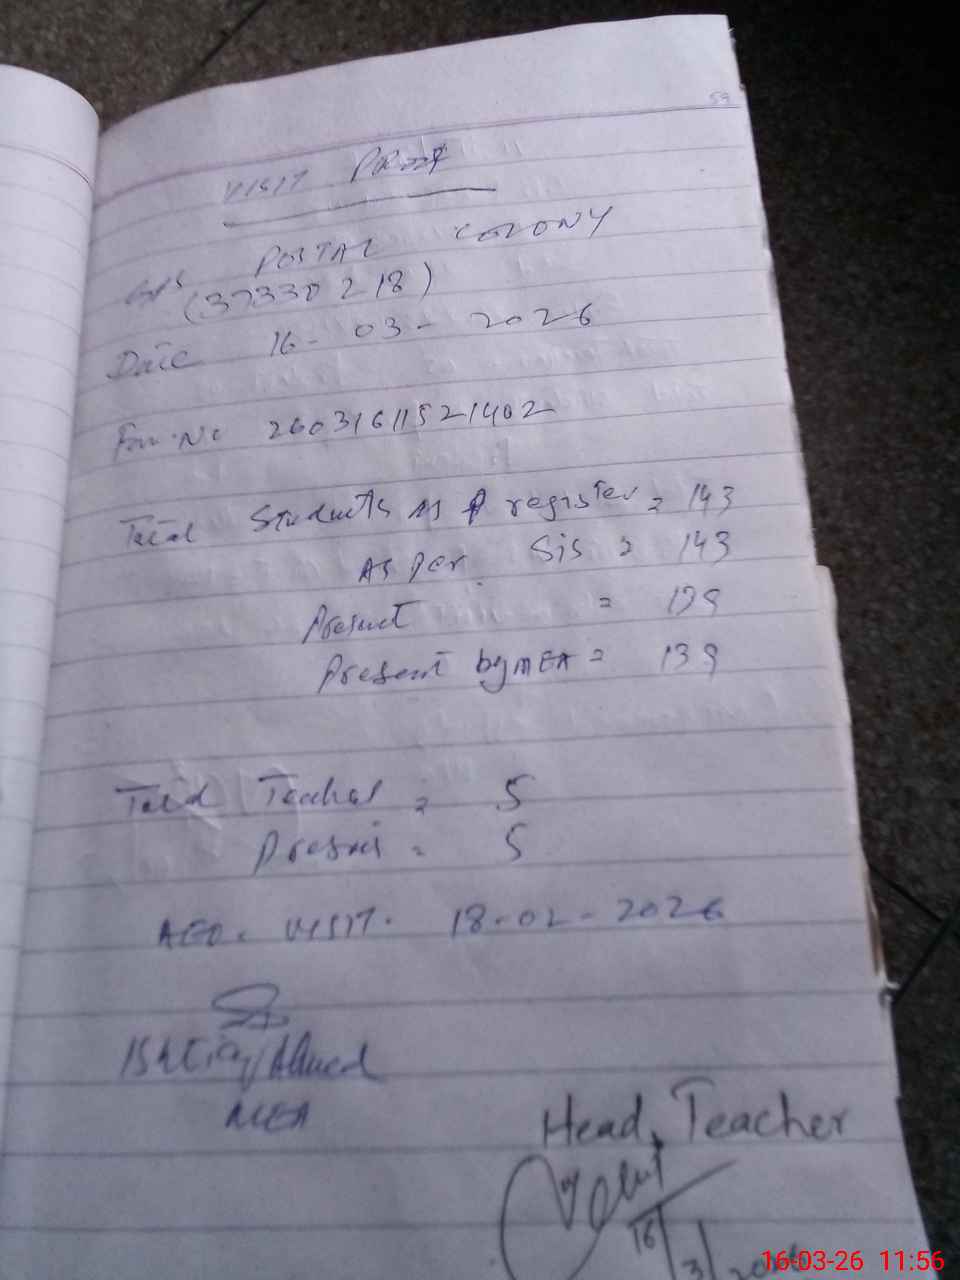 59
VISIT PROOF
GPS POSTAL COLONY
(37330218)
Date 16-03-2026
For. No 26031611521402
Total Students As P register = 143
As per. Sis = 143
Present = 139
Present by MEA = 139
Total Teacher = 5
Present = 5
AEO. VISIT. 18-02-2026
Ishtiaq Ahmed
MEA
Head Teacher
16/3/2026
16-03-26 11:56